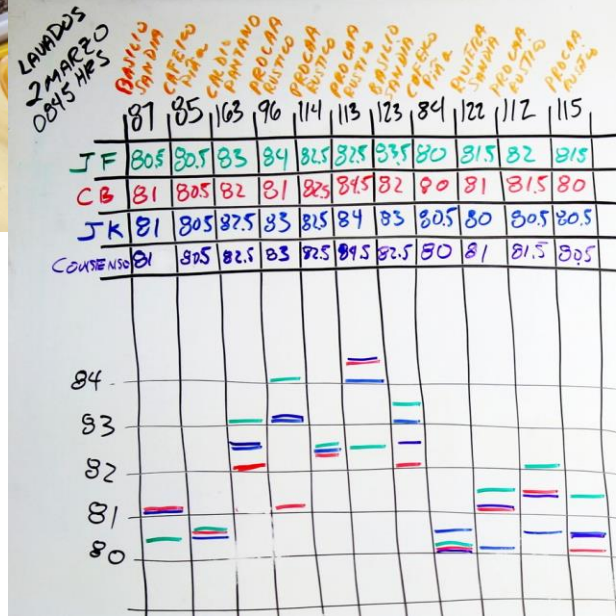 LAVADOS
2 MARZO
0845 HRS
BASILIO SANDIA
CAFEICO Piña
PROCAA RUSTICO
PROCAA RUSTICO
PROCAA RUSTICO
BASILIO SANDIA
CAFEICO Piña
SANDIA
PROCAA RUSTICO
PROCAA RUSTICO
87 85 163 96 114 113 123 84 122 112 115
JF 80.5 80.5 83 84 82.5 82.5 83.5 80 81.5 82 81.5
CB 81 80.5 82 81 82.5 84.5 82 80 81 81.5 80
JK 81 80.5 82.5 83 82.5 84 83 80.5 80 80.5 80.5
CONSENSO 81 80.5 82.5 83 82.5 84.5 82.5 80 81 81.5 80.5
84
83
82
81
80